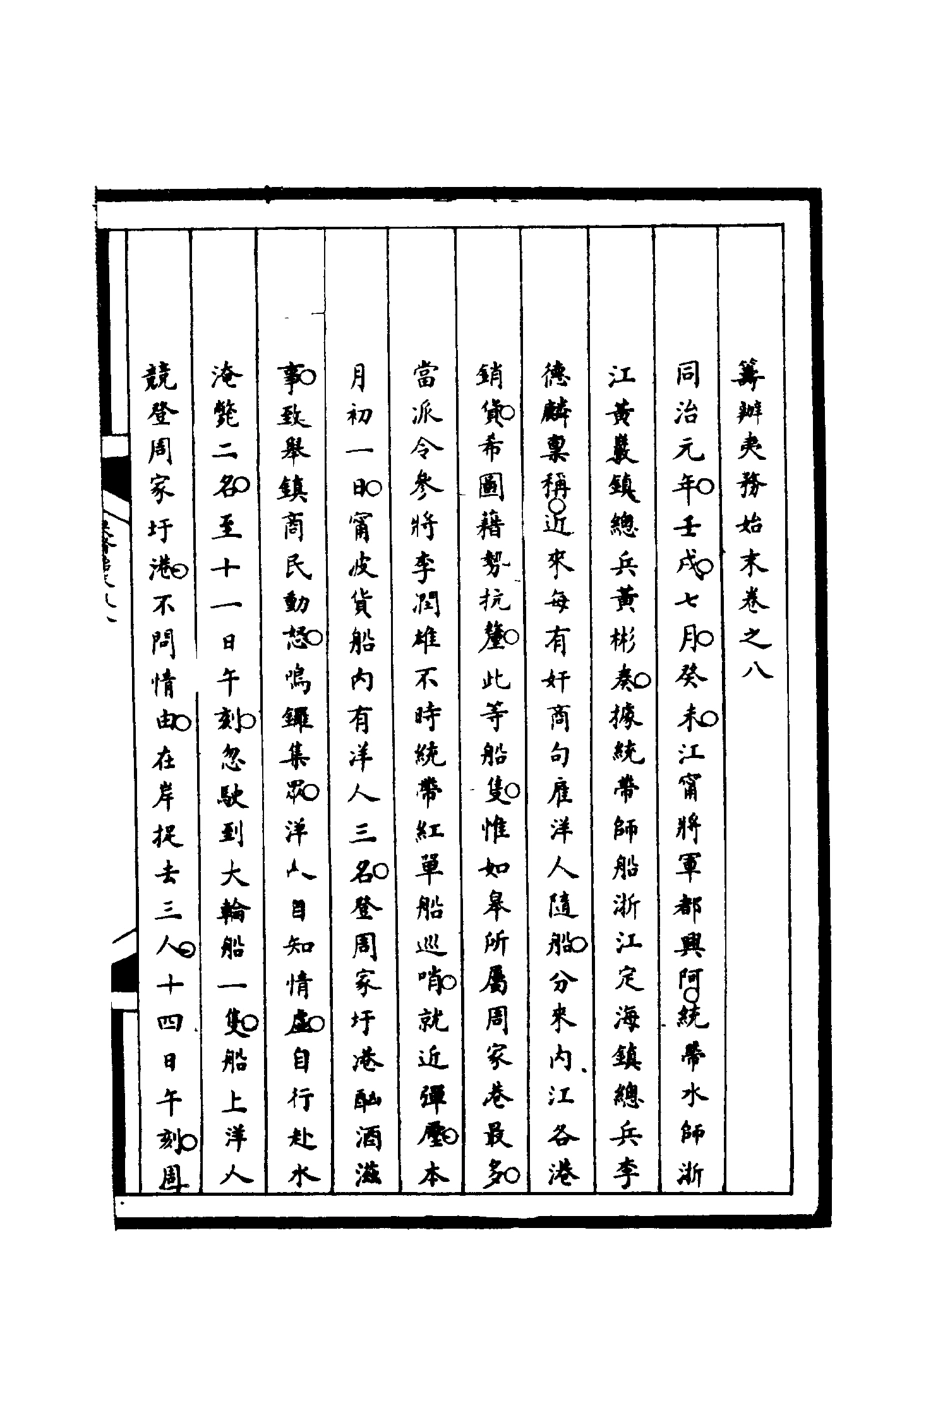 籌辦夷務始末卷之八
同治元年。壬戌。七月。癸未。江甯將軍都興阿。統帶水師浙
江黃巖鎮總兵黃彬奏。據統帶師船浙江定海鎮總兵李
德麟稟稱。近來每有奸商句雇洋人隨船。分來內江各港
銷貨。希圖藉勢抗釐。此等船隻。惟如皋所屬周家港最多。
當派令參將李潤雄不時統帶紅單船巡哨。就近彈壓。本
月初一日。甯波貨船內有洋人三名。登周家圩港酗酒滋
事。致舉鎮商民動怒。鳴鑼集眾。洋人自知情虛。自行赴水
淹斃二名。至十一日午刻。忽駛到大輪船一隻。船上洋人
競登周家圩港。不問情由。在岸捉去三人。十四日午刻。周